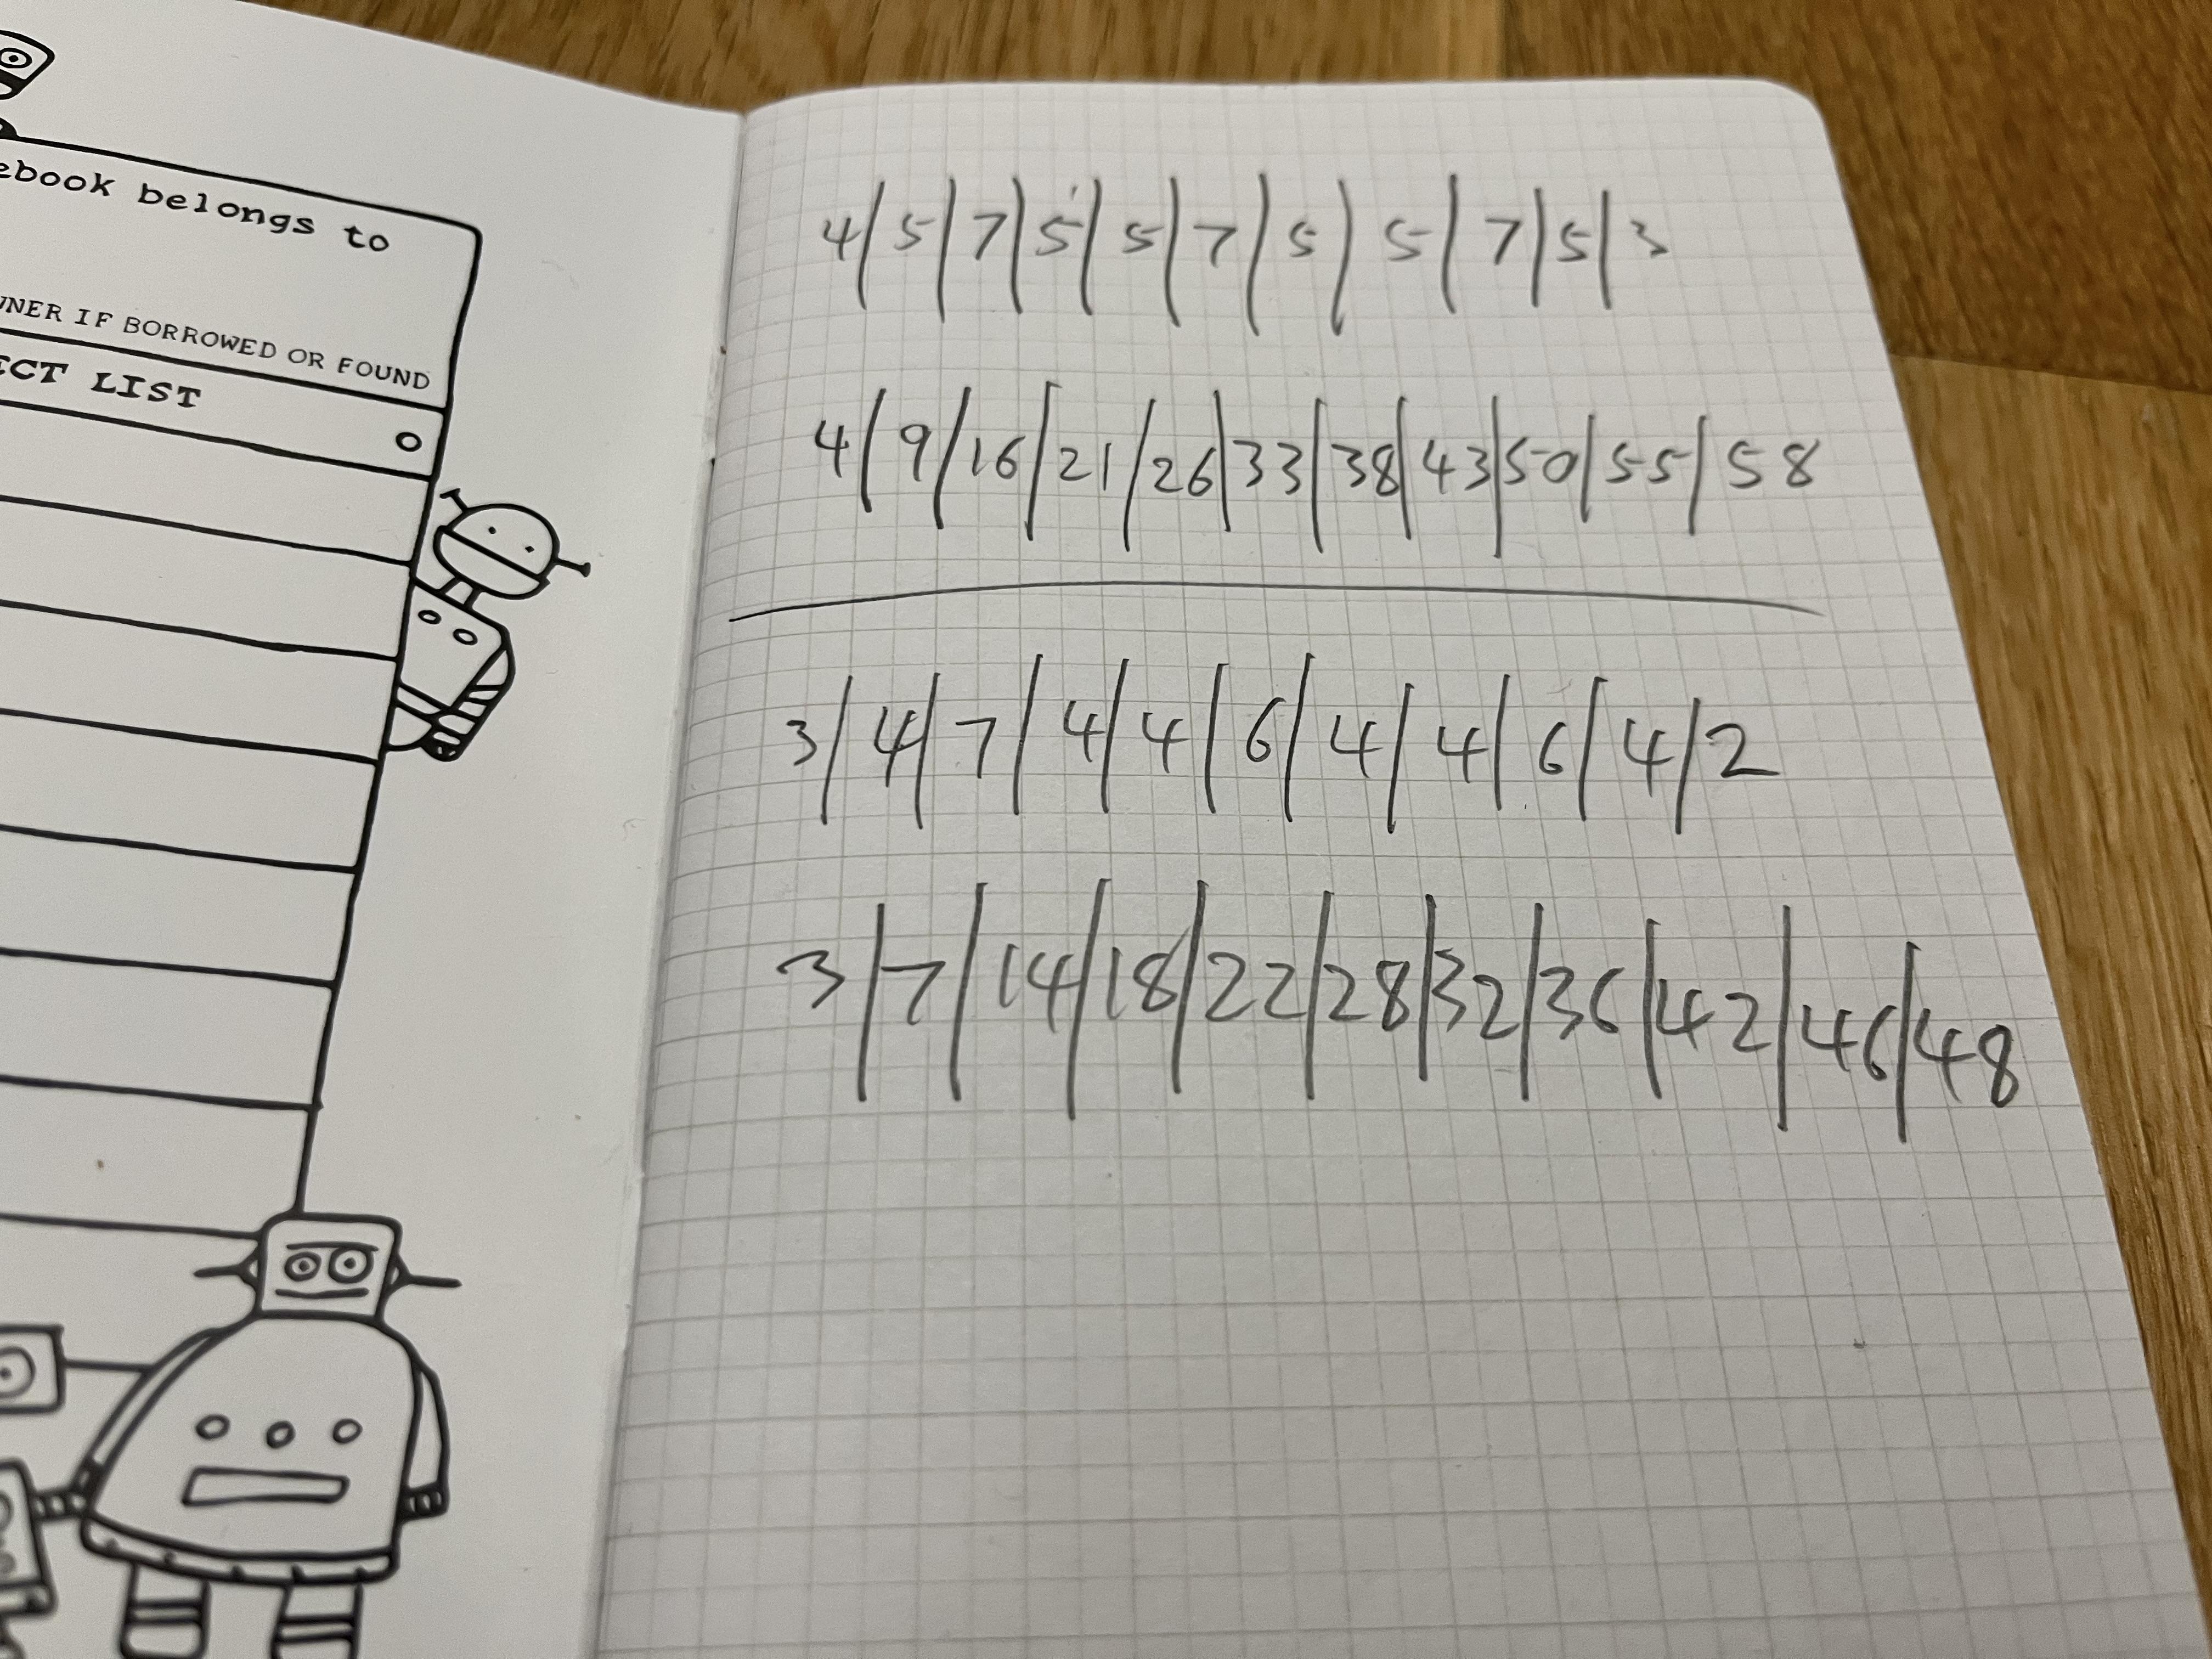 ebook belongs to
NER IF BORROWED OR FOUND
ECT LIST
4|5|7|5|5|7|5|5|7|5|3
4|9|16|21|26|33|38|43|50|55|58
3|4|7|4|4|6|4|4|6|4|2
3|7|14|18|22|28|32|36|42|46|48